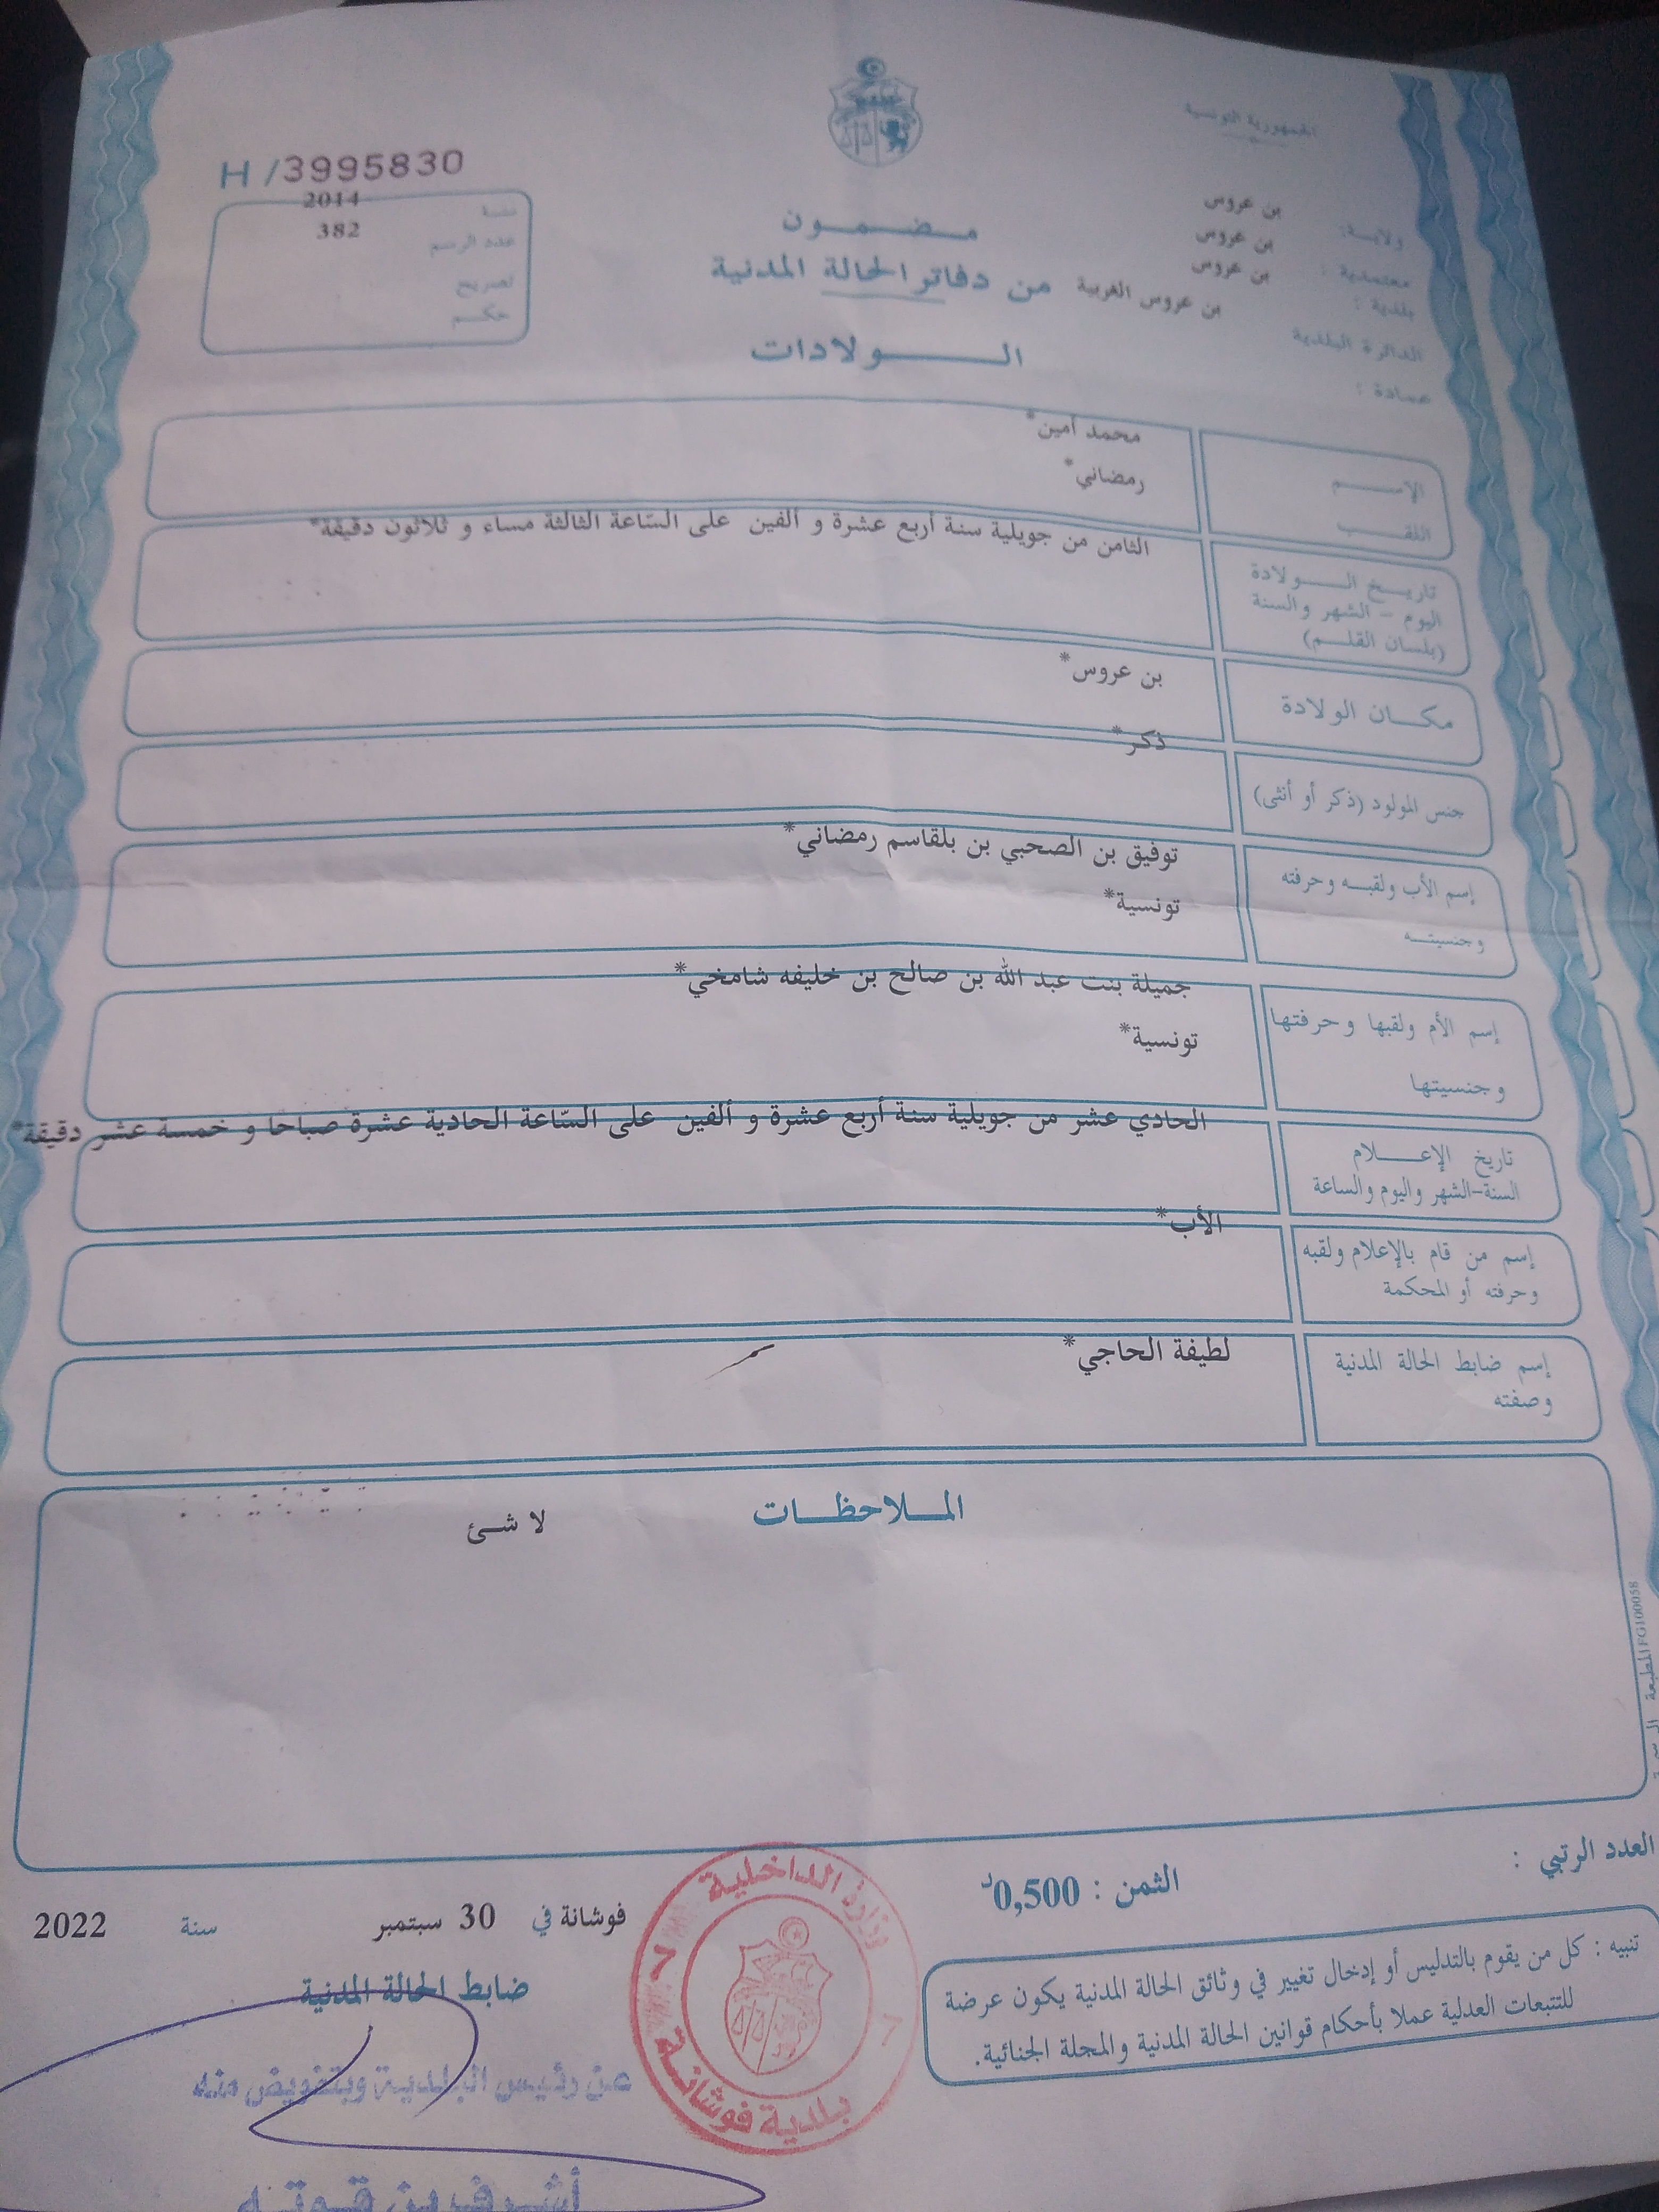 الجمهورية التونسية
H /3995830
ولاية: بن عروس
معتمدية : بن عروس
بلدية : بن عروس
الدائرة البلدية بن عروس الغربية
عمادة :
مضمون
من دفاتر الحالة المدنية
الولادات
سنة 2014
عدد الرسم 382
تصريح
حكم
الاسم محمد أمين*
اللقب رمضاني*
تاريخ الولادة
اليوم - الشهر والسنة
(بلسان القلم)
الثامن من جويلية سنة أربع عشرة و ألفين على السّاعة الثالثة مساء و ثلاثون دقيقة*
مكان الولادة بن عروس*
جنس المولود (ذكر أو أنثى) ذكر*
إسم الأب ولقبه وحرفته توفيق بن الصحبي بن بلقاسم رمضاني*
وجنسيته تونسية*
إسم الأم ولقبها وحرفتها جميلة بنت عبد الله بن صالح بن خليفه شامخي*
وجنسيتها تونسية*
تاريخ الإعلام
السنة-الشهر واليوم والساعة
الحادي عشر من جويلية سنة أربع عشرة و ألفين على السّاعة الحادية عشرة صباحا و خمسة عشر دقيقة*
إسم من قام بالإعلام ولقبه
وحرفته أو المحكمة
الأب*
إسم ضابط الحالة المدنية
وصفته
لطيفة الحاجي*
الملاحظات
لا شئ
العدد الرتبي :
الثمن : 0,500د
تنبيه : كل من يقوم بالتدليس أو إدخال تغيير في وثائق الحالة المدنية يكون عرضة
للتتبعات العدلية عملا بأحكام قوانين الحالة المدنية والمجلة الجنائية.
فوشانة في 30 سبتمبر سنة 2022
ضابط الحالة المدنية
عن رئيس البلدية وبتفويض منه
وزارة الداخلية
بلدية فوشانة